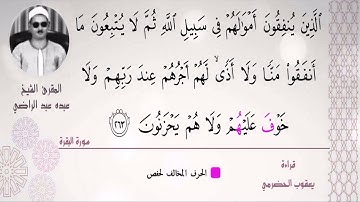 ٱلَّذِينَ يُنفِقُونَ أَمْوَٰلَهُمْ فِي سَبِيلِ ٱللَّهِ ثُمَّ لَا يُتْبِعُونَ مَا
أَنفَقُوا۟ مَنًّا وَلَآ أَذًىۙ لَّهُمْ أَجْرُهُمْ عِندَ رَبِّهِمْ وَلَا
خَوْفَ عَلَيْهُمْ وَلَا هُمْ يَحْزَنُونَ ٢٦٣
المقرئ الشيخ
عبده عبد الراضي
سورة البقرة
الحرف المخالف لحفص
قراءة
يعقوب الحضرمي